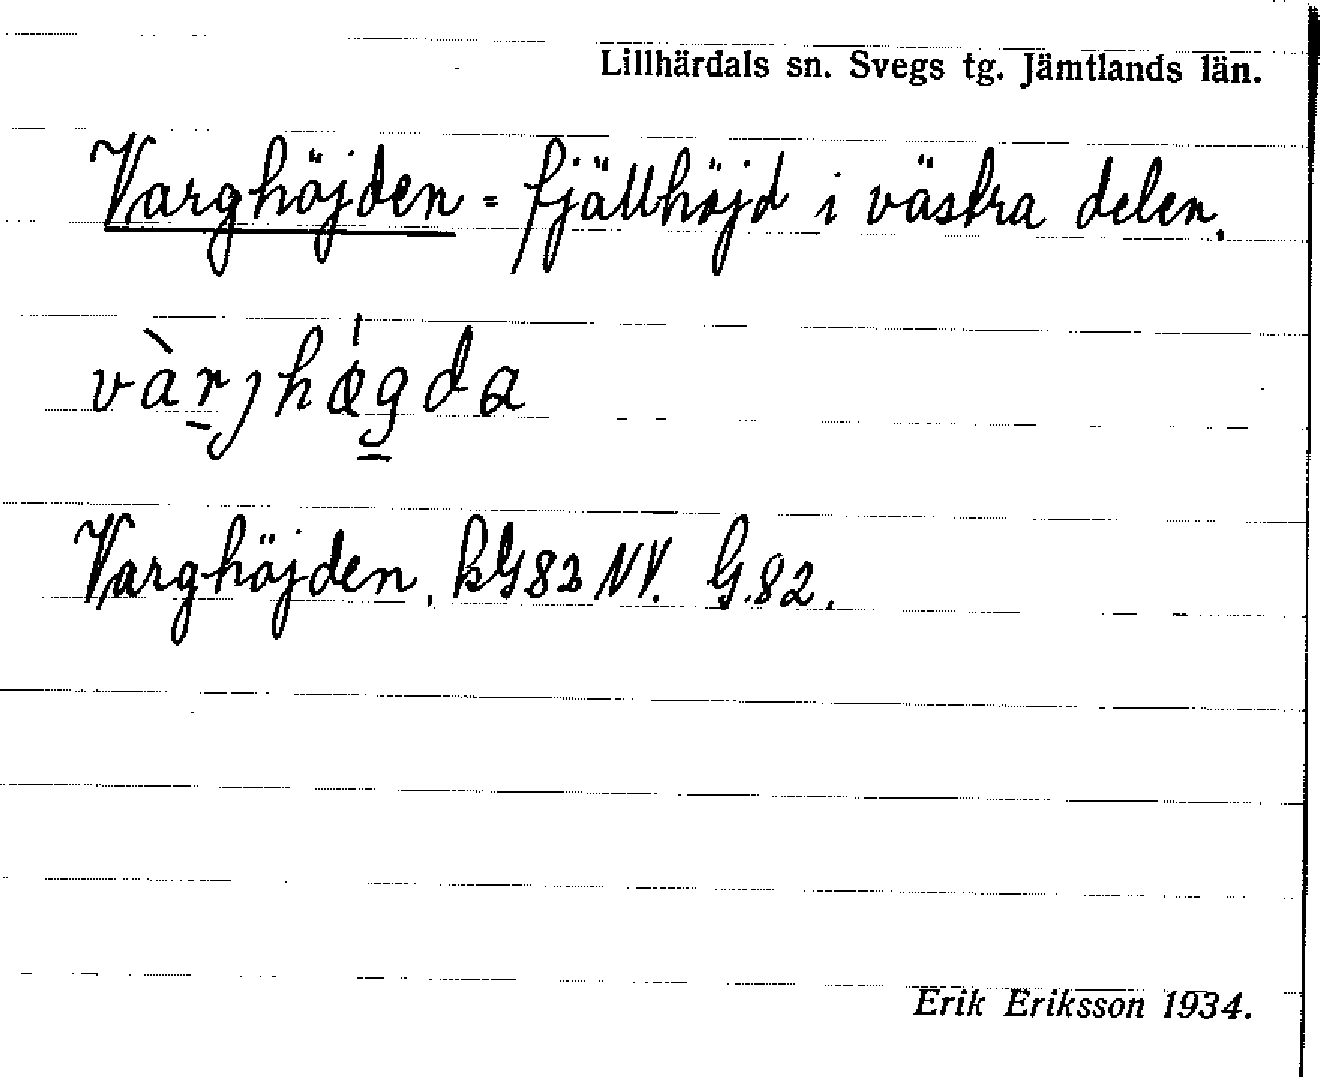 Lillhärdals sn. Svegs tg. Jämtlands län.
Varghöjden = fjällhöjd i västra delen.
vàrjhǿgda
Varghöjden, kG83 NV. G.82.
Erik Eriksson 1934.